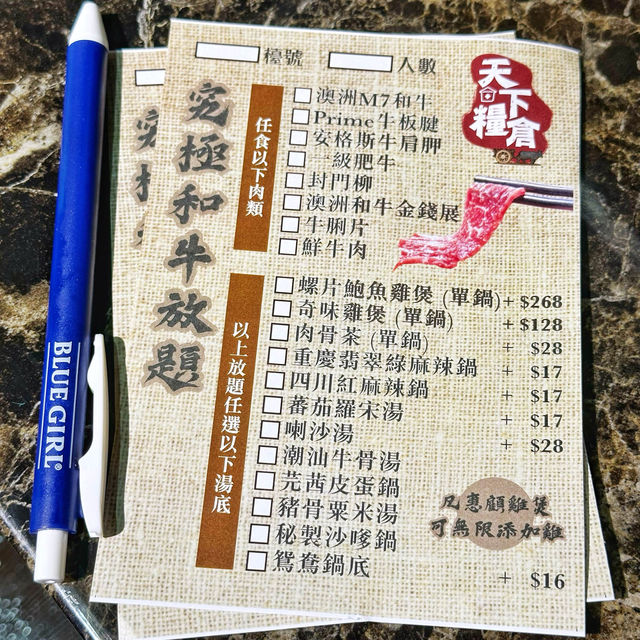 檯號 人數
天下糧倉
究極和牛放題
任食以下肉類
澳洲M7和牛
Prime牛板腱
安格斯牛肩胛
一級肥牛
封門柳
澳洲和牛金錢展
牛脷片
鮮牛肉
以上放題任選以下湯底
螺片鮑魚雞煲 (單鍋) + $268
奇味雞煲 (單鍋) + $128
肉骨茶 (單鍋) + $28
重慶翡翠綠麻辣鍋 + $17
四川紅麻辣鍋 + $17
蕃茄羅宋湯 + $28
喇沙湯
潮汕牛骨湯
芫茜皮蛋鍋
豬骨粟米湯
秘製沙嗲鍋
鴛鴦鍋底 + $16
凡惠顧雞煲
可無限添加雞
BLUE GIRL®